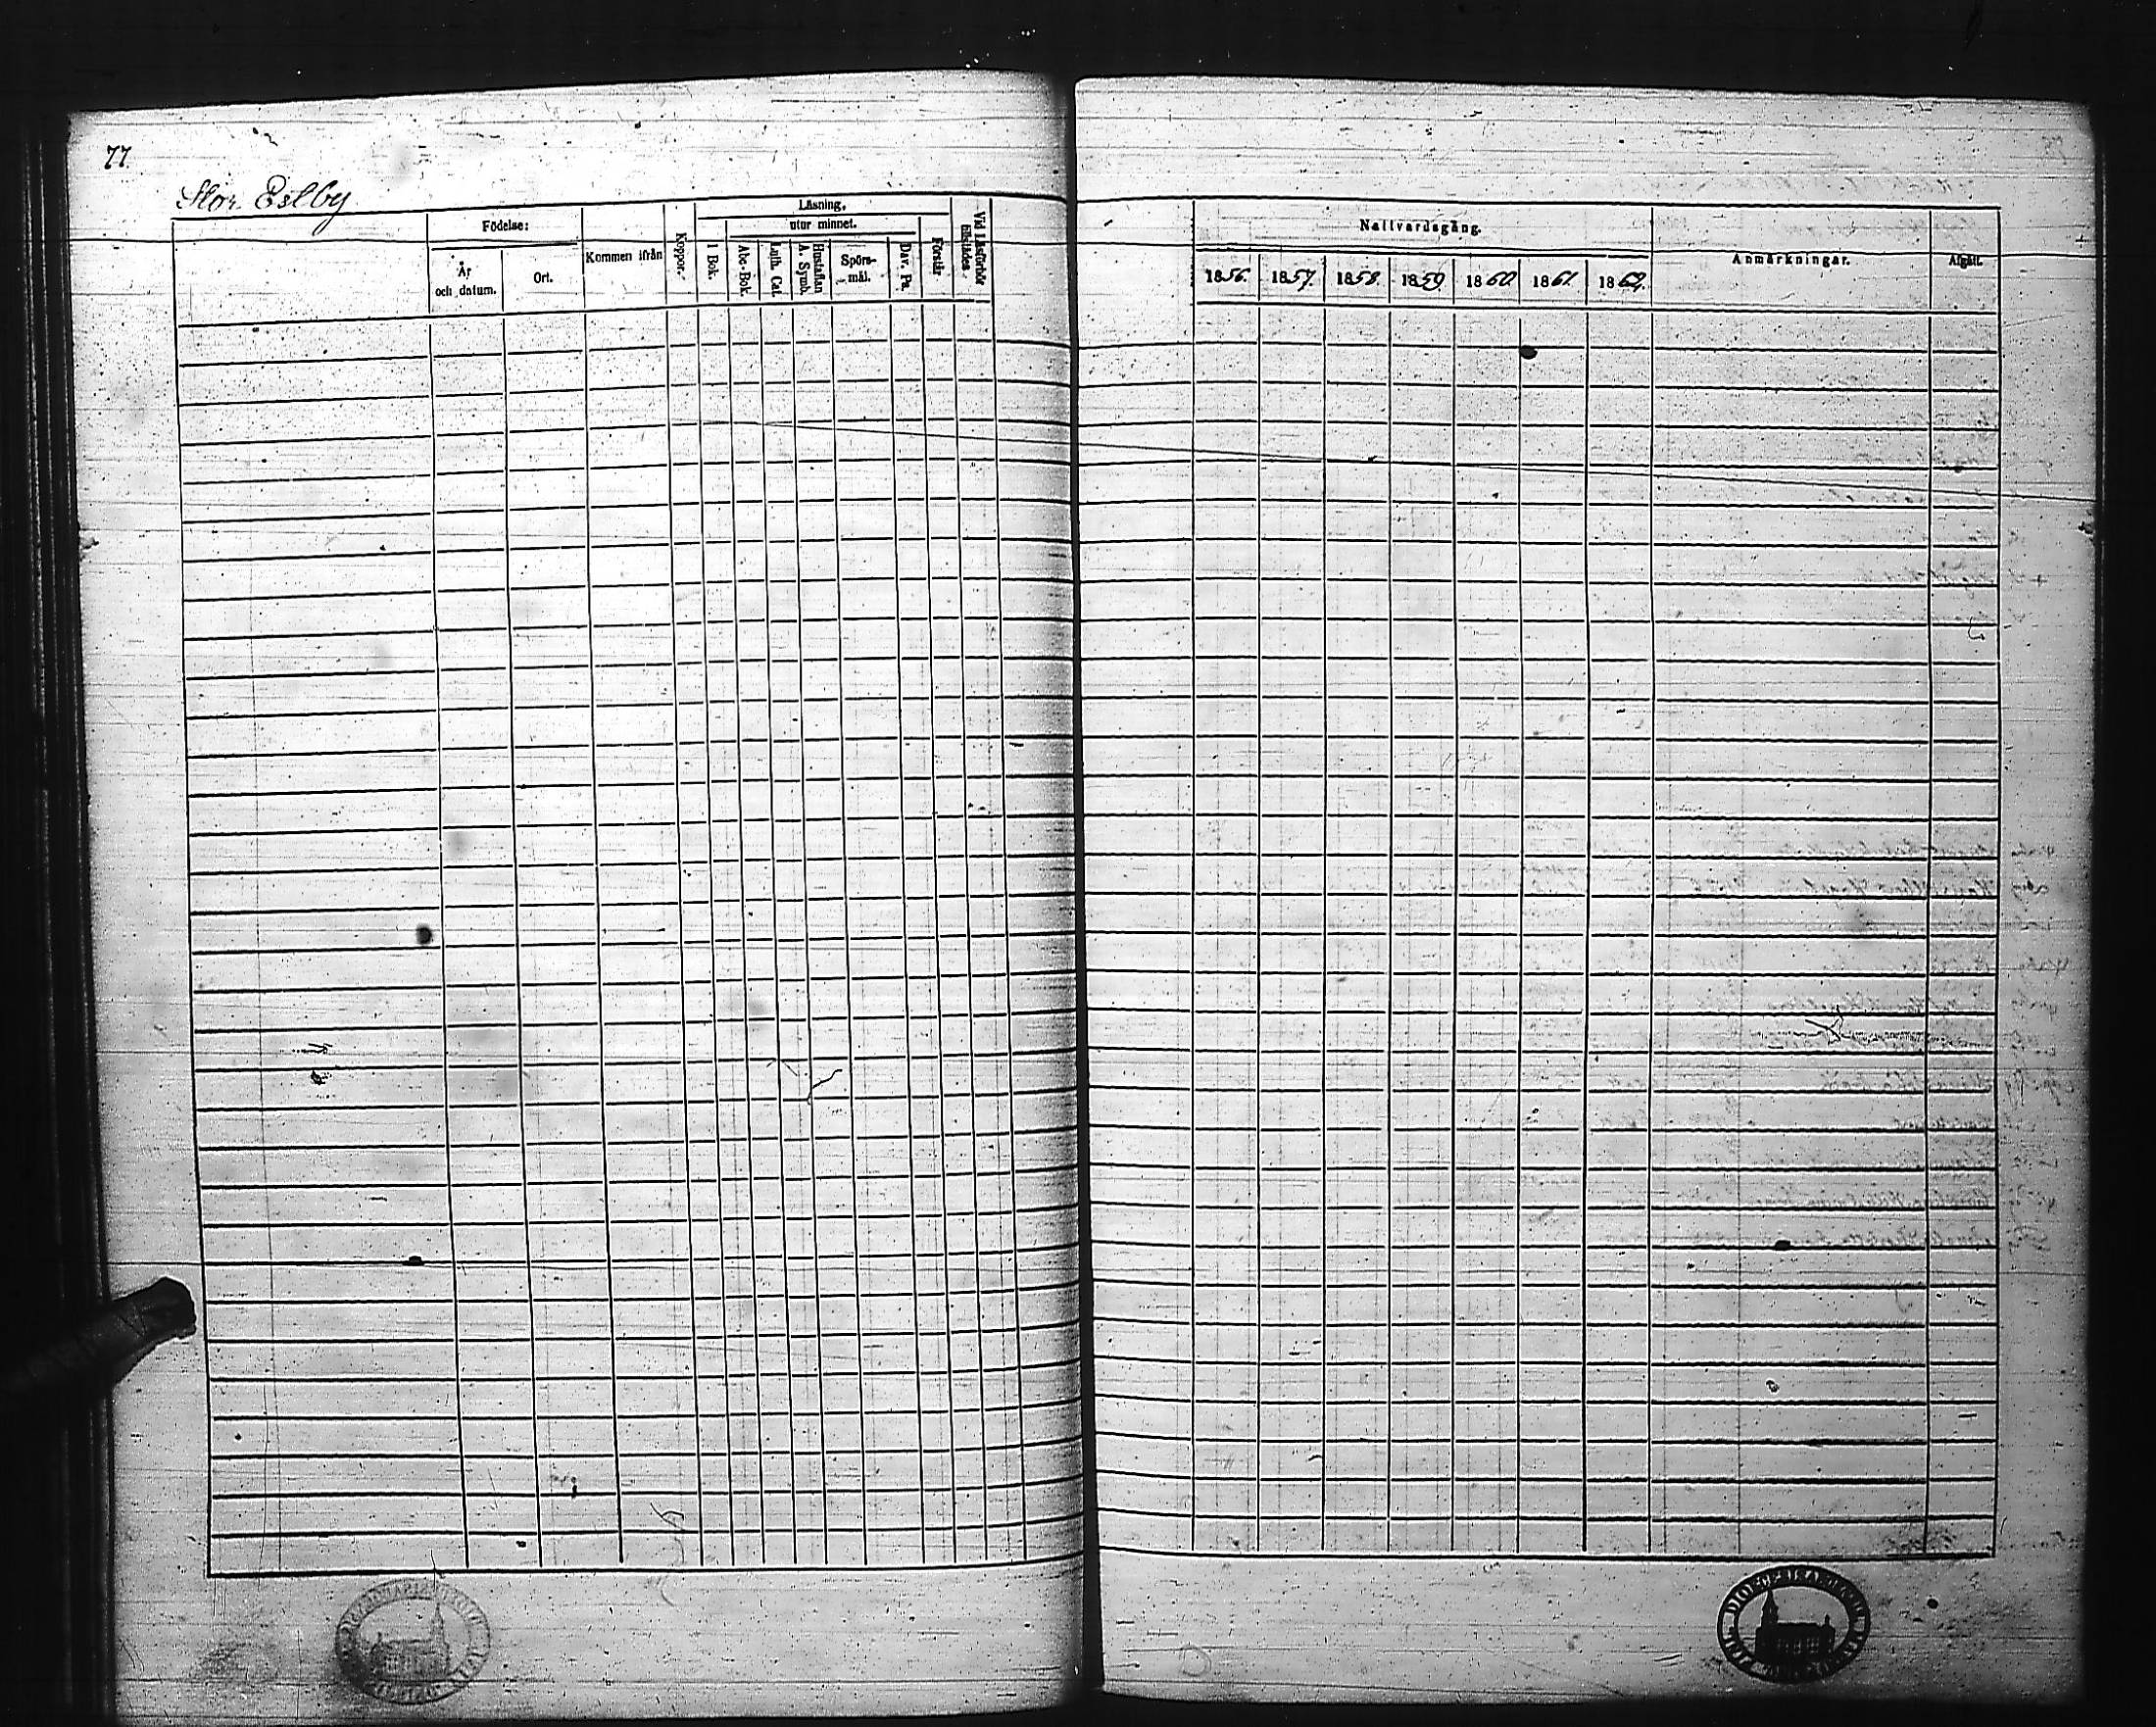 77
Stor Eslby
Födelse:
År och datum.
Ort.
Kommen ifrån
Koppor.
Läsning,
utur minnet.
I Bok.
Abc-Bok.
Luth. Cat.
Hustaflan A. Symb.
Spörs-mål.
Dav. Ps.
Förstår
Vid Läsförhör
Nattvardsgång.
1856. 1857. 1858. 1859. 1860. 1861. 1862.
Anmärkningar.
Afgått.